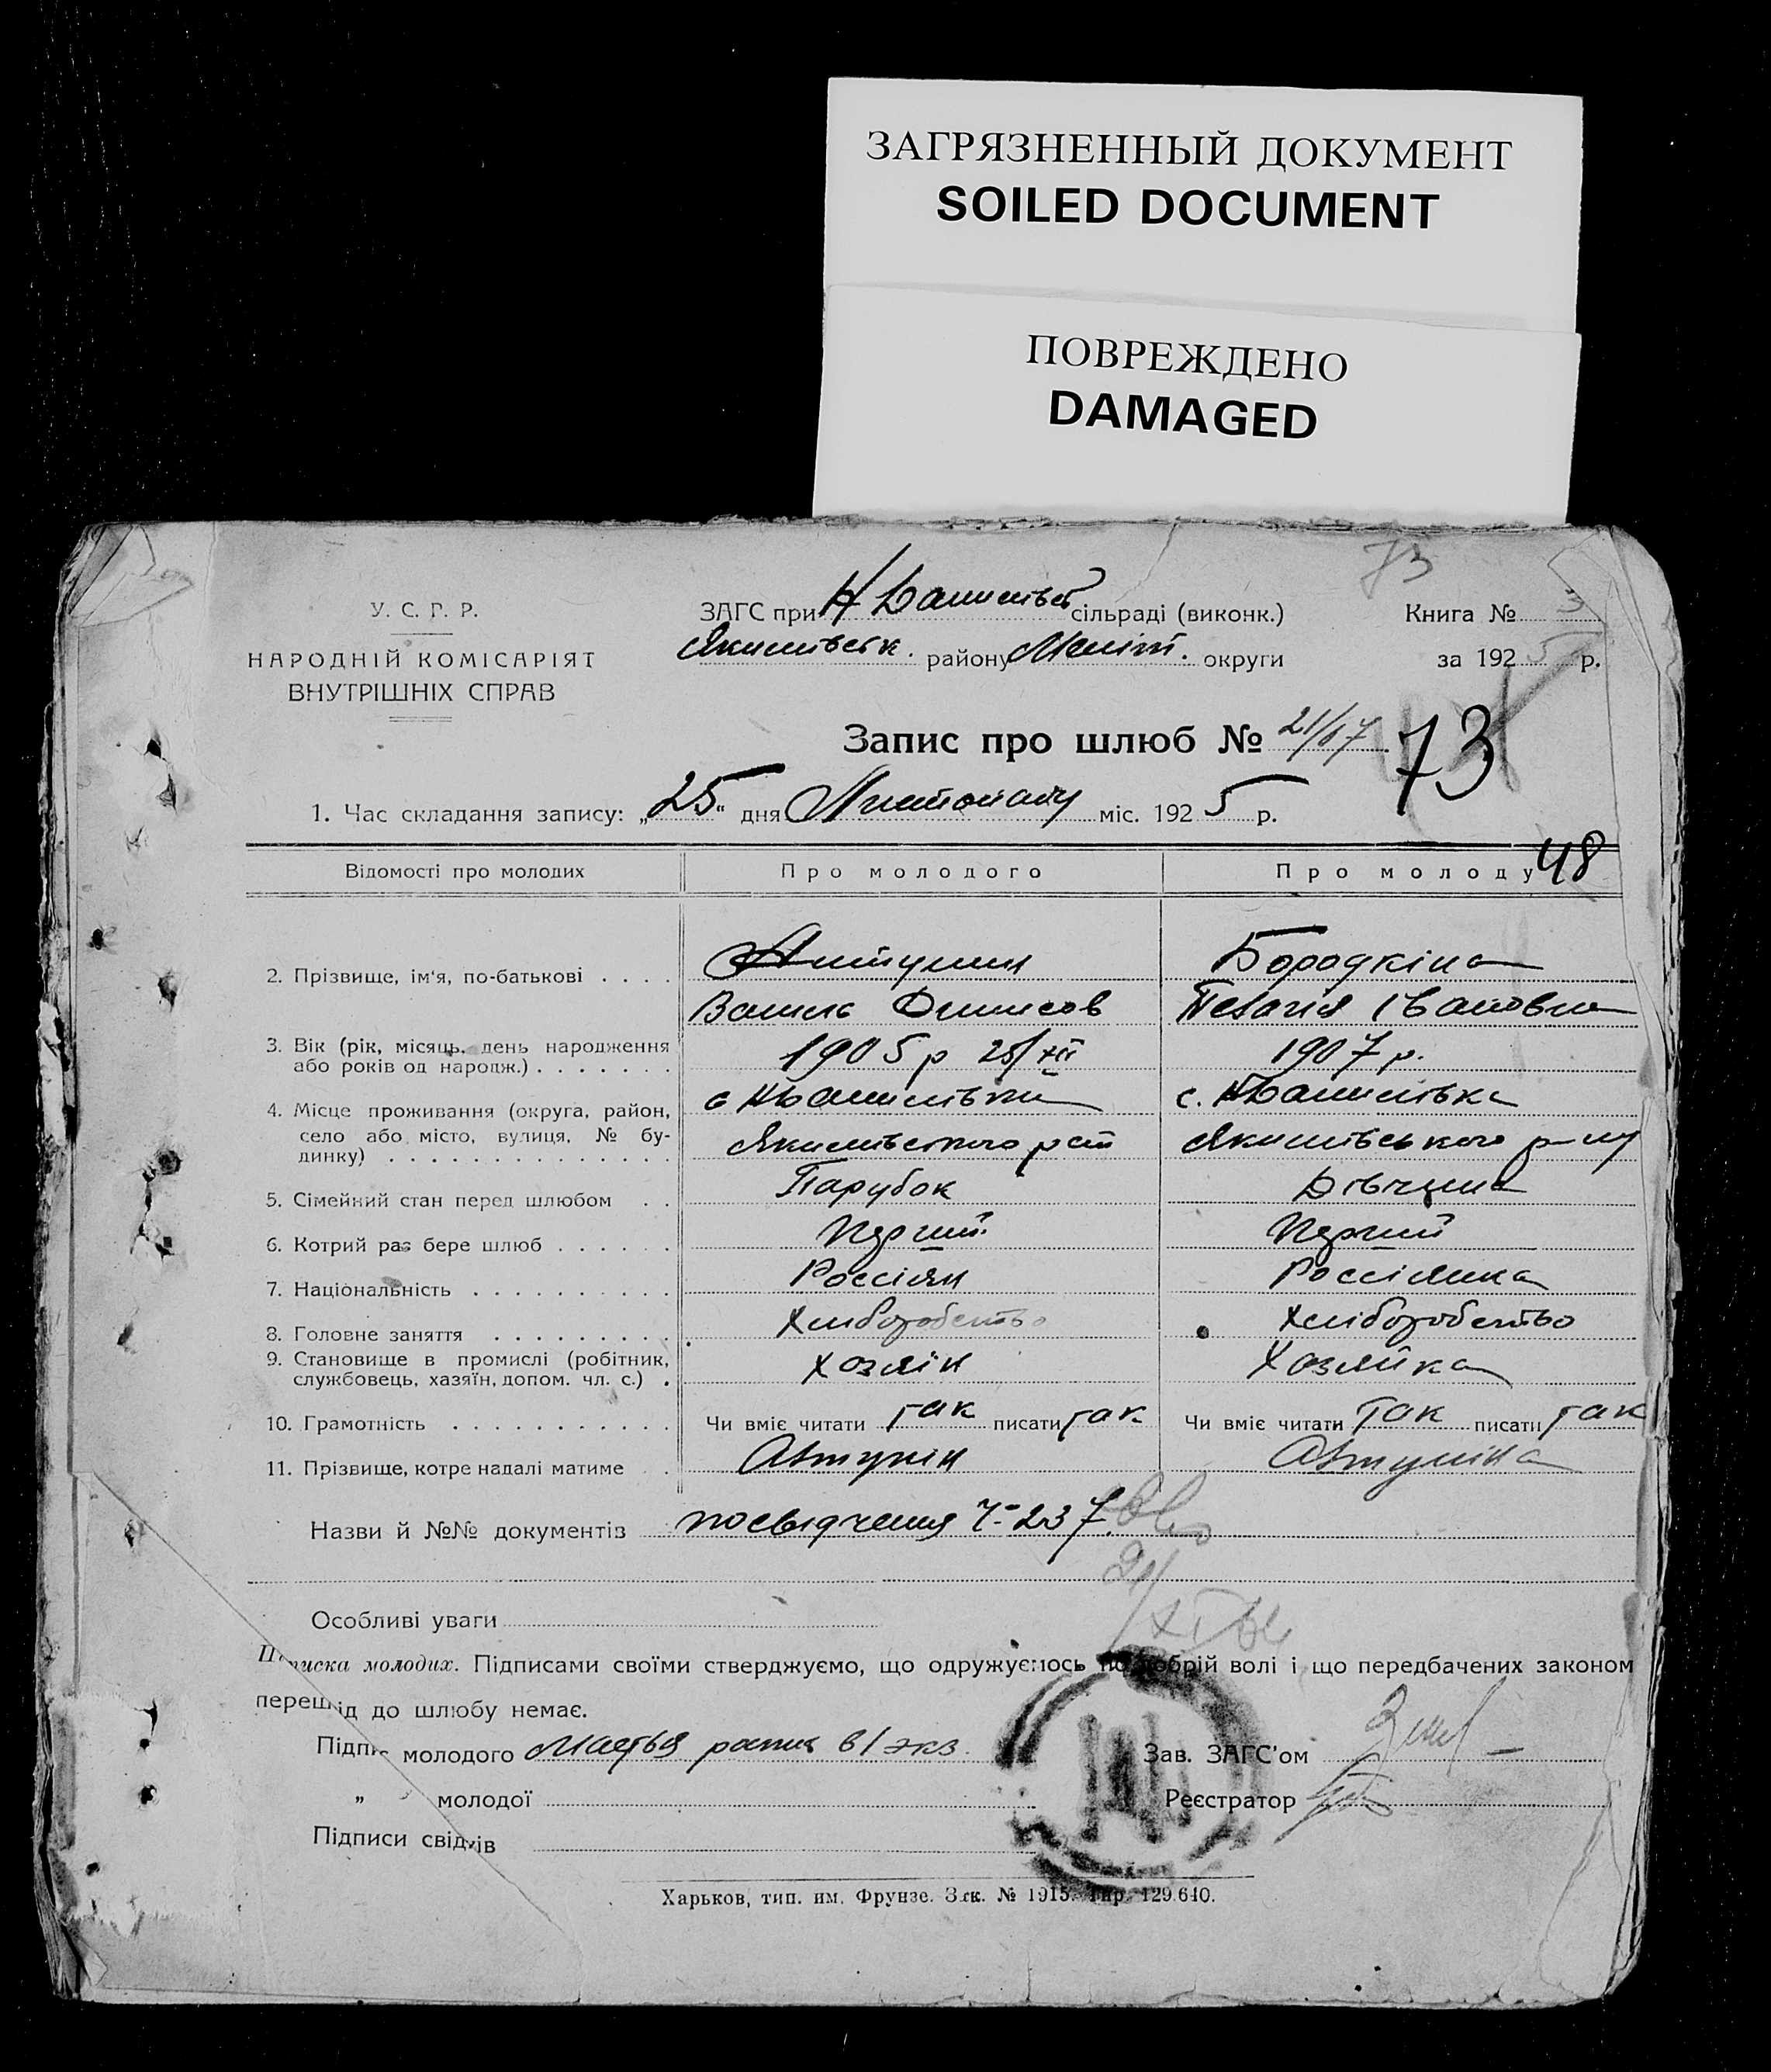 ЗАГРЯЗНЕННЫЙ ДОКУМЕНТ
SOILED DOCUMENT
ПОВРЕЖДЕНО
DAMAGED
73
У. С. Р. Р.
НАРОДНІЙ КОМІСАРІЯТ
ВНУТРІШНІХ СПРАВ
ЗАГС при сільраді (виконк.)
Якимівськ. району Меліт. округи
Книга № 3
за 1925 р.
Запис про шлюб № 21/67 73
1. Час складання запису: „25“ дня Листопаду міс. 1925 р.
48
Відомості про молодих Про молодого Про молоду
2. Прізвище, ім'я, по-батькові . . . . Бородкіна
Василь Денисов Пелагія Івановна
3. Вік (рік, місяць, день народження
або років од народж.) . . . . . . . 1905 р 25/XII 1907 р.
4. Місце проживання (округа, район, с НДанилівки с. НДанилівка
село або місто, вулиця, № бу-
динку) . . . . . . . . . . . . . . Якимівського Якимівського р-ну
5. Сімейний стан перед шлюбом . . Парубок Дівчина
6. Котрий раз бере шлюб . . . . . . Перший Перший
7. Національність . . . . . . . . . . Россіян Россіянка
8. Головне заняття . . . . . . . . . Хліборобство Хліборобство
9. Становище в промислі (робітник,
службовець, хазяїн, допом. чл. с.) . Хозяїн Хозяйка
10. Грамотність . . . . . . . . . . . Чи вміє читати так писати так Чи вміє читати так писати так
11. Прізвище, котре надалі матиме . . Автунін Автуніна
Назви й №№ документів посвідчення Ч-237.
Особливі уваги
Підписка молодих. Підписами своїми стверджуємо, що одружуємось по добрій волі і що передбачених законом
перешкід до шлюбу немає.
Підпис молодого в 1 экз.
„ молодої
Підписи свідків
Зав. ЗАГС'ом
Реєстратор
Харьков, тип. им. Фрунзе. Зак. № 1915. Тир. 129.640.